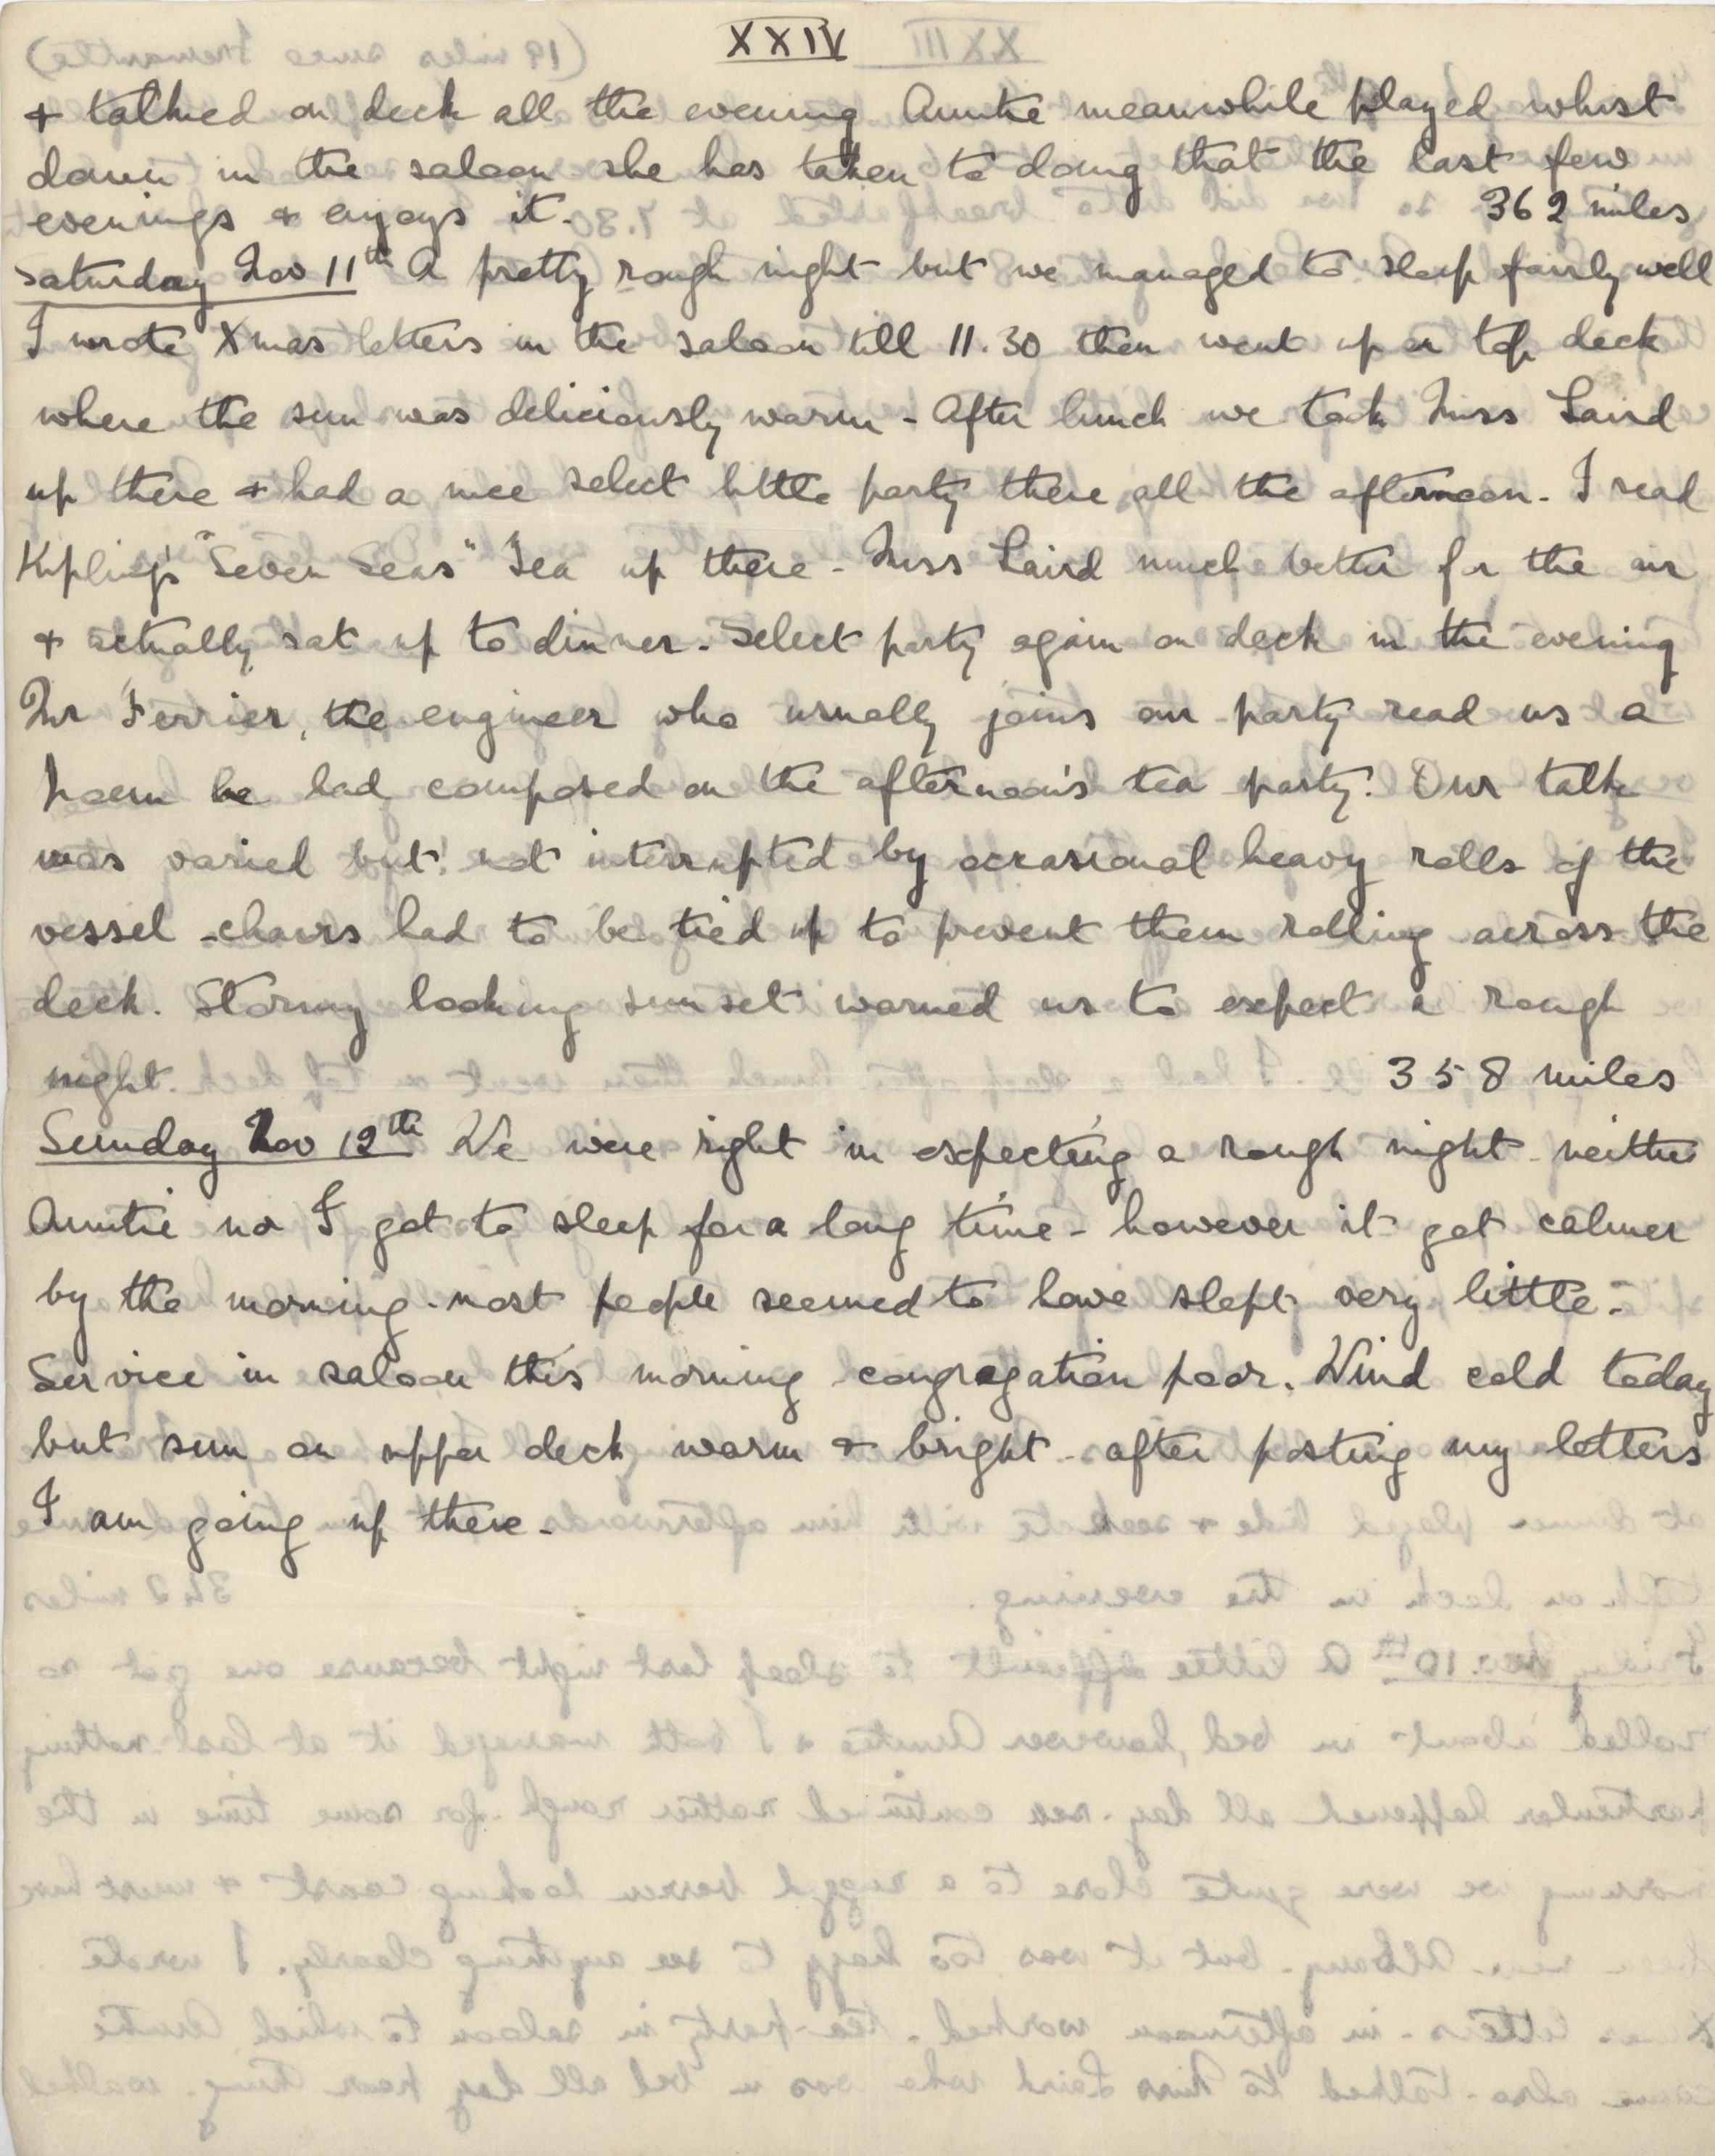 XXIV
& talked on deck all the evening Auntie meanwhile played whist
down in the saloon she has taken to doing that the last few
evenings & enjoys it. 362 miles
Saturday Nov 11th A pretty rough night but we managed to sleep fairly well
I wrote Xmas letters in the saloon till 11.30 then went up on top deck
where the sun was deliciously warm - After lunch we took Miss Laird
up there & had a nice select little party there all the afternoon - I read
Kipling's "Seven Seas" Tea up there - Miss Laird much better for the air
& actually sat up to dinner - Select party again on deck in the evening
Mr Ferrier, the engineer who usually joins our party read us a
poem he had composed on the afternoon's tea party! Our talk
was varied but not interrupted by occasional heavy rolls of the
vessel - chairs had to be tied up to prevent them rolling across the
deck. Stormy looking sunset warned us to expect a rough
night. 358 miles
Sunday Nov 12th We were right in expecting a rough night - neither
Auntie nor I got to sleep for a long time - however it got calmer
by the morning - most people seemed to have slept very little -
Service in saloon this morning congregation poor. Wind cold today
but sun on upper deck warm & bright - after posting my letters
I am going up there -